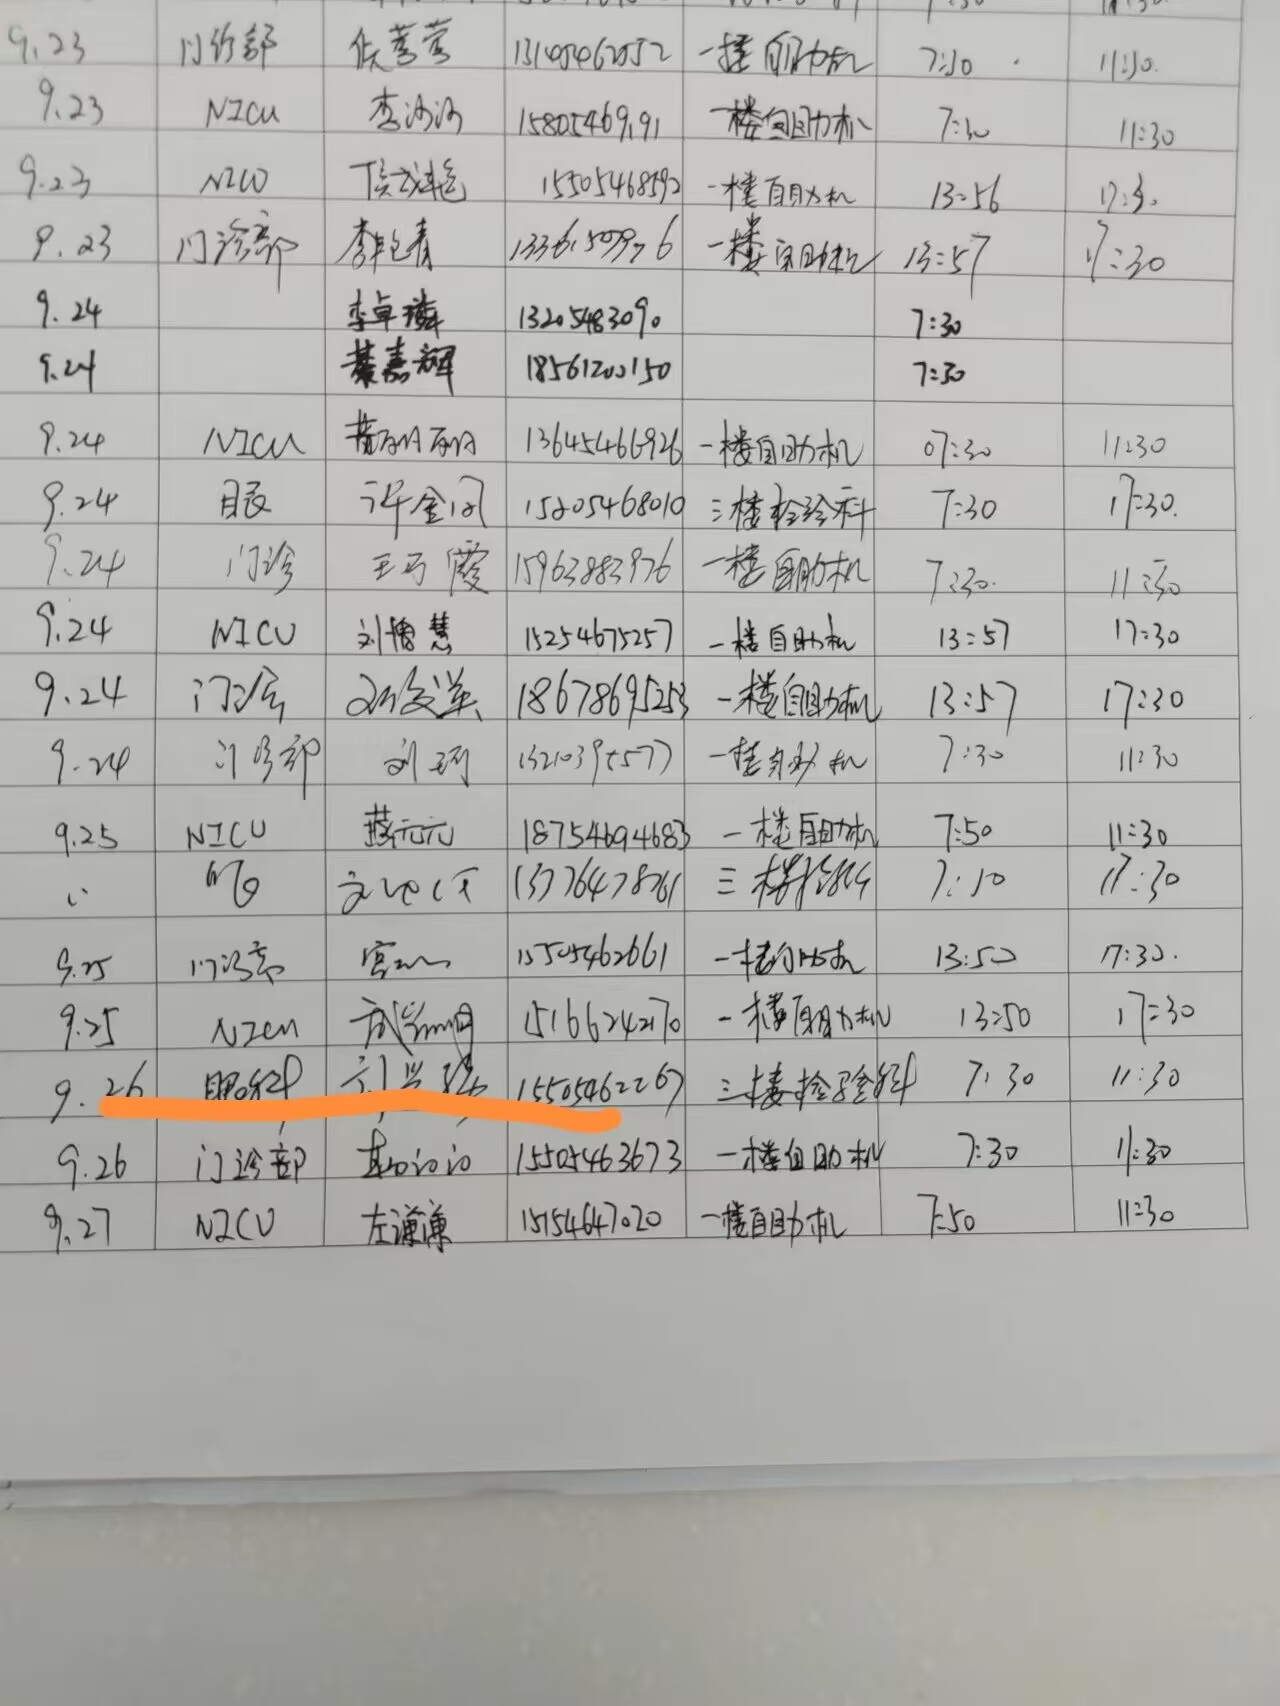 9.23 门诊部 13145462552 一楼自助机 7:30 11:30.
9.23 NICU 李沙沙 15805469191 一楼自助机 7:30 11:30
9.23 NICU 15505468592 一楼自助机 13:56 17:30
9.23 门诊部 李艳青 一楼自助机 13:57 17:30
9.24 李卓璘 13205483090 7:30
9.24 綦嘉辉 18561200150 7:30
9.24 NICU 13645466926 一楼自助机 07:30 11:30
9.24 眼 许金凤 15205468010 三楼检验科 7:30 17:30.
9.24 门诊 王巧霞 15963883976 一楼自助机 7:30. 11:30
9.24 NICU 刘博慧 15254675257 一楼自助机 13:57 17:30
9.24 门诊 18678695253 一楼自助机 13:57 17:30
9.24 门诊部 刘珂 13210395577 一楼自助机 7:30 11:30
9.25 NICU 蔡元元 18754694683 一楼自助机 7:50 11:30
三楼检验科 7:10 17:30
9.25 门诊部 15505462661 一楼自助机 13:50 17:30.
9.25 NICU 15166242170 一楼自助机 13:50 17:30
9.26 眼科 15505462267 三楼检验科 7:30 11:30
9.26 门诊部 15505463673 一楼自助机 7:30 11:30
9.27 NICU 左谦谦 15154647020 一楼自助机 7:50 11:30